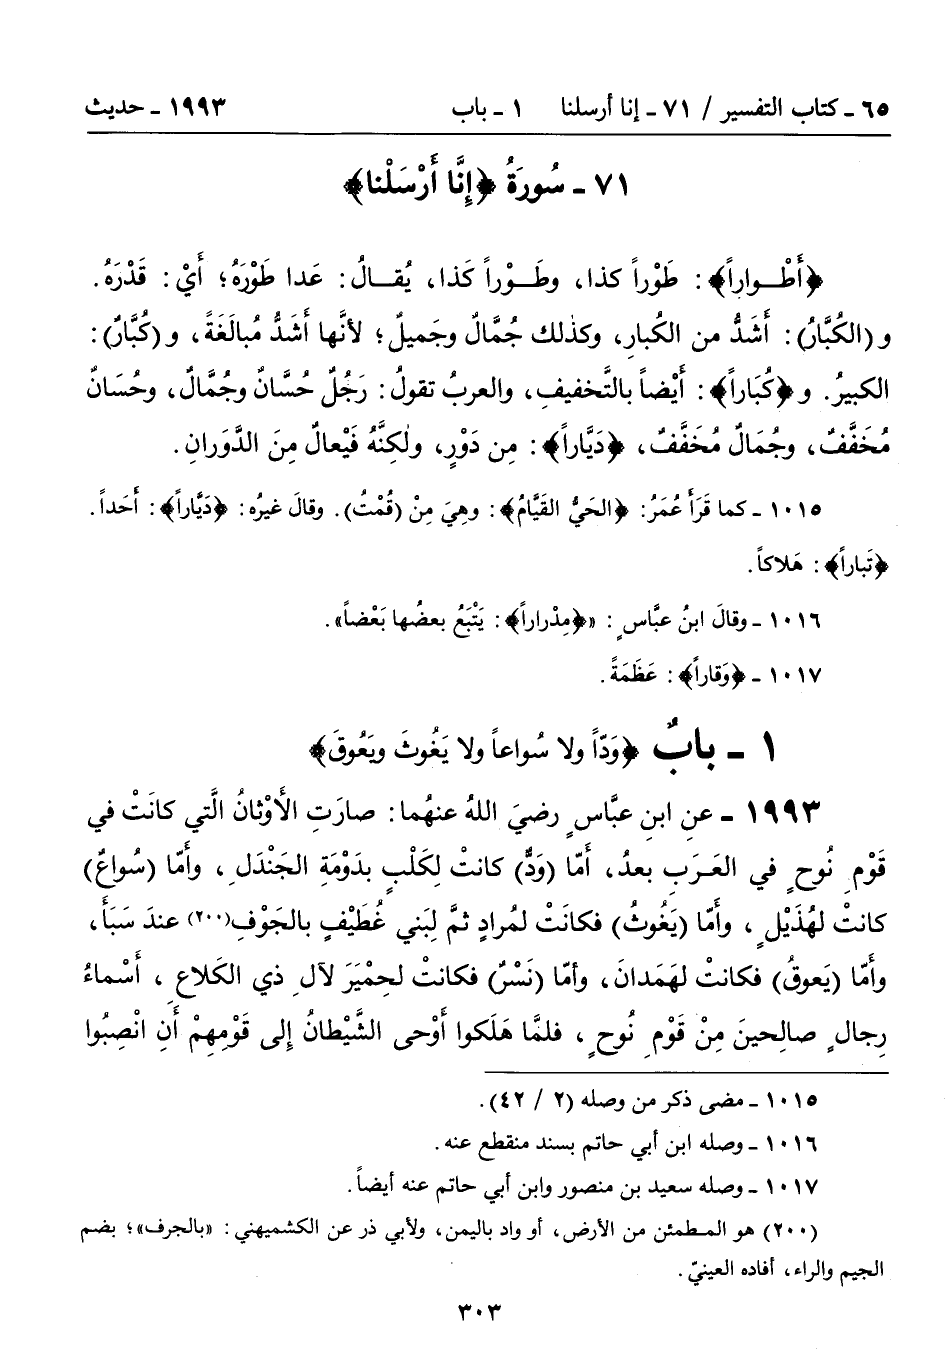 ٦٥ ـ كتاب التفسير / ٧١ ـ إنا أرسلنا ١ ـ باب ١٩٩٣ ـ حديث
٧١ ـ سُورَةُ ﴿إِنَّا أَرْسَلْنا﴾
﴿أَطْـواراً﴾: طَوْراً كذا، وطَـوْراً كَذا، يُقـالُ: عَدا طَوْرَهُ؛ أَيْ: قَدْرَهُ.
و (الكُبَّارُ): أَشَدُّ من الكُبارِ، وكذٰلك جُمَّالٌ وجَميلٌ؛ لأنَّها أشَدُّ مُبالَغَةً، و (كُبَّارٌ):
الكبيرُ. و ﴿كُبَاراً﴾: أَيْضاً بالتَّخفيفِ، والعربُ تقولُ: رَجُلٌ حُسَّانٌ وجُمَّالٌ، وحُسَانٌ
مُخَفَّفٌ، وجُمَالٌ مُخَفَّفٌ، ﴿دَيَّاراً﴾: مِن دَوْرٍ، ولٰكِنَّهُ فَيْعالٌ مِنَ الدَّوَرانِ.
١٠١٥ ـ كما قَرَأَ عُمَرُ: ﴿الحَيُّ القَيَّامُ﴾: وهِيَ مِنْ (قُمْتُ). وقالَ غيرُه: ﴿دَيَّاراً﴾: أَحَداً.
﴿تَباراً﴾: هَلاكاً.
١٠١٦ ـ وقالَ ابنُ عبَّاسٍ: «﴿مِدْراراً﴾: يَتْبَعُ بعضُها بَعْضاً».
١٠١٧ ـ ﴿وَقاراً﴾: عَظَمَةً.
١ ـ بابٌ ﴿وَدّاً ولا سُواعاً ولا يَغُوثَ ويَعُوقَ﴾
١٩٩٣ ـ عنِ ابنِ عبَّاسٍ رضيَ اللهُ عنهُما: صارَتِ الأَوْثانُ الَّتي كانَتْ في
قَوْمِ نُوحٍ في العَـرَبِ بعدُ، أَمَّا (وَدٌّ) كانتْ لِكَلْبٍ بدَوْمَةِ الجَنْدَلِ، وأَمَّا (سُواعٌ)
كانتْ لهُذَيْلٍ، وأَمَّا (يَغُوثُ) فكانَتْ لمُرادٍ ثمَّ لِبَني غُطَيْفٍ بالجَوْفِ(٢٠٠) عندَ سَبَأَ،
وأَمَّا (يَعوقُ) فكانتْ لهَمدانَ، وأمَّا (نَسْرٌ) فكانتْ لحِمْيَرَ لآلِ ذي الكَلاعِ، أَسْماءُ
رِجالٍ صالِحينَ مِنْ قَوْمِ نُوحٍ، فلمَّا هَلَكوا أَوْحى الشَّيْطانُ إِلى قَوْمِهِمْ أَنِ انْصِبُوا
١٠١٥ ـ مضى ذكر من وصله (٢ / ٤٢).
١٠١٦ ـ وصله ابن أبي حاتم بسند منقطع عنه.
١٠١٧ ـ وصله سعيد بن منصور وابن أبي حاتم عنه أيضاً.
(٢٠٠) هو المـطمئن من الأرض، أو واد باليمن، ولأبي ذر عن الكشميهني: «بالجرف»؛ بضم
الجيم والراء، أفاده العينيّ.
٣٠٣